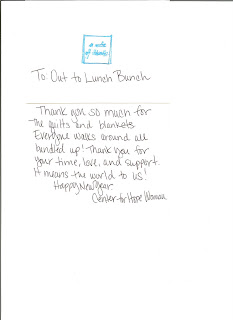 a note
of thanks
To Out to Lunch Bunch
Thank you so much for
the quilts and blankets
Everyone walks around all
bundled up! Thank you for
your time, love, and support
It means the world to us!
Happy New Year
Center for Hope Woman